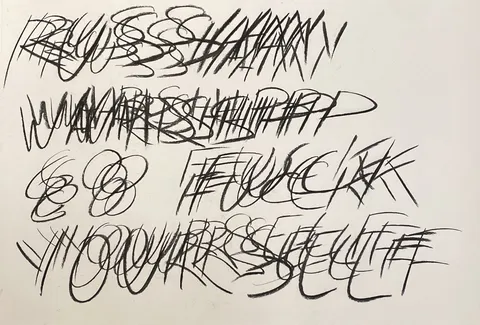 RUSSIAN
WARSHIP
GO FUCK
YOURSELF